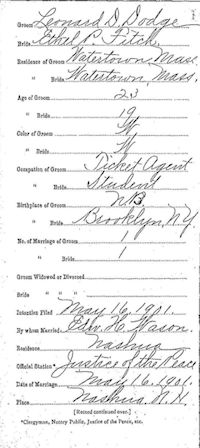 Groom Leonard D. Dodge
Bride Ethel P. Fitch
Residence of Groom Watertown, Mass.
" Bride Watertown, Mass.
Age of Groom 23
" Bride 19
Color of Groom W
" Bride W
Occupation of Groom Ticket Agent
" Bride Student
Birthplace of Groom N.B.
" Bride Brooklyn, N.Y.
No. of Marriage of Groom 1
" Bride 1
Groom Widowed or Divorced
Bride " "
Intention Filed May 16, 1901.
By whom Married Edw. H. Wason.
Residence Nashua
Official Station* Justice of the Peace
Date of Marriage May 16, 1901.
Place Nashua, N.H.
[Record continued over.]
*Clergyman, Notary Public, Justice of the Peace, etc.